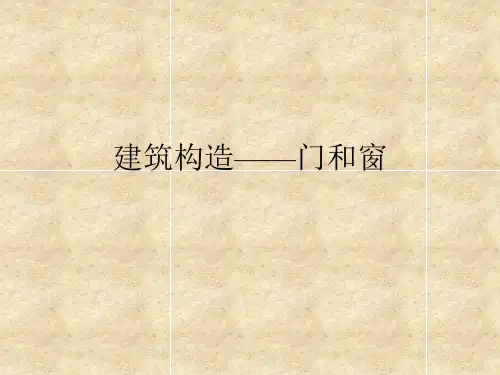 建筑构造——门和窗